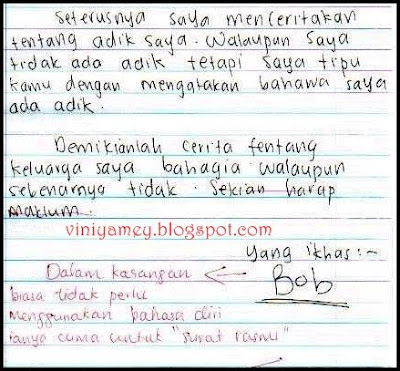 Seterusnya saya menceritakan
tentang adik saya. Walaupun saya
tidak ada adik tetapi saya tipu
kamu dengan mengatakan bahawa saya
ada adik.
Demikianlah cerita tentang
keluarga saya bahagia walaupun
sebenarnya tidak. Sekian harap
maklum.
viniyamey.blogspot.com
Yang ikhas:~
Bob
Dalam karangan
biasa tidak perlu
menggunakan bahasa diri
hanya cuma untuk "surat rasmi"